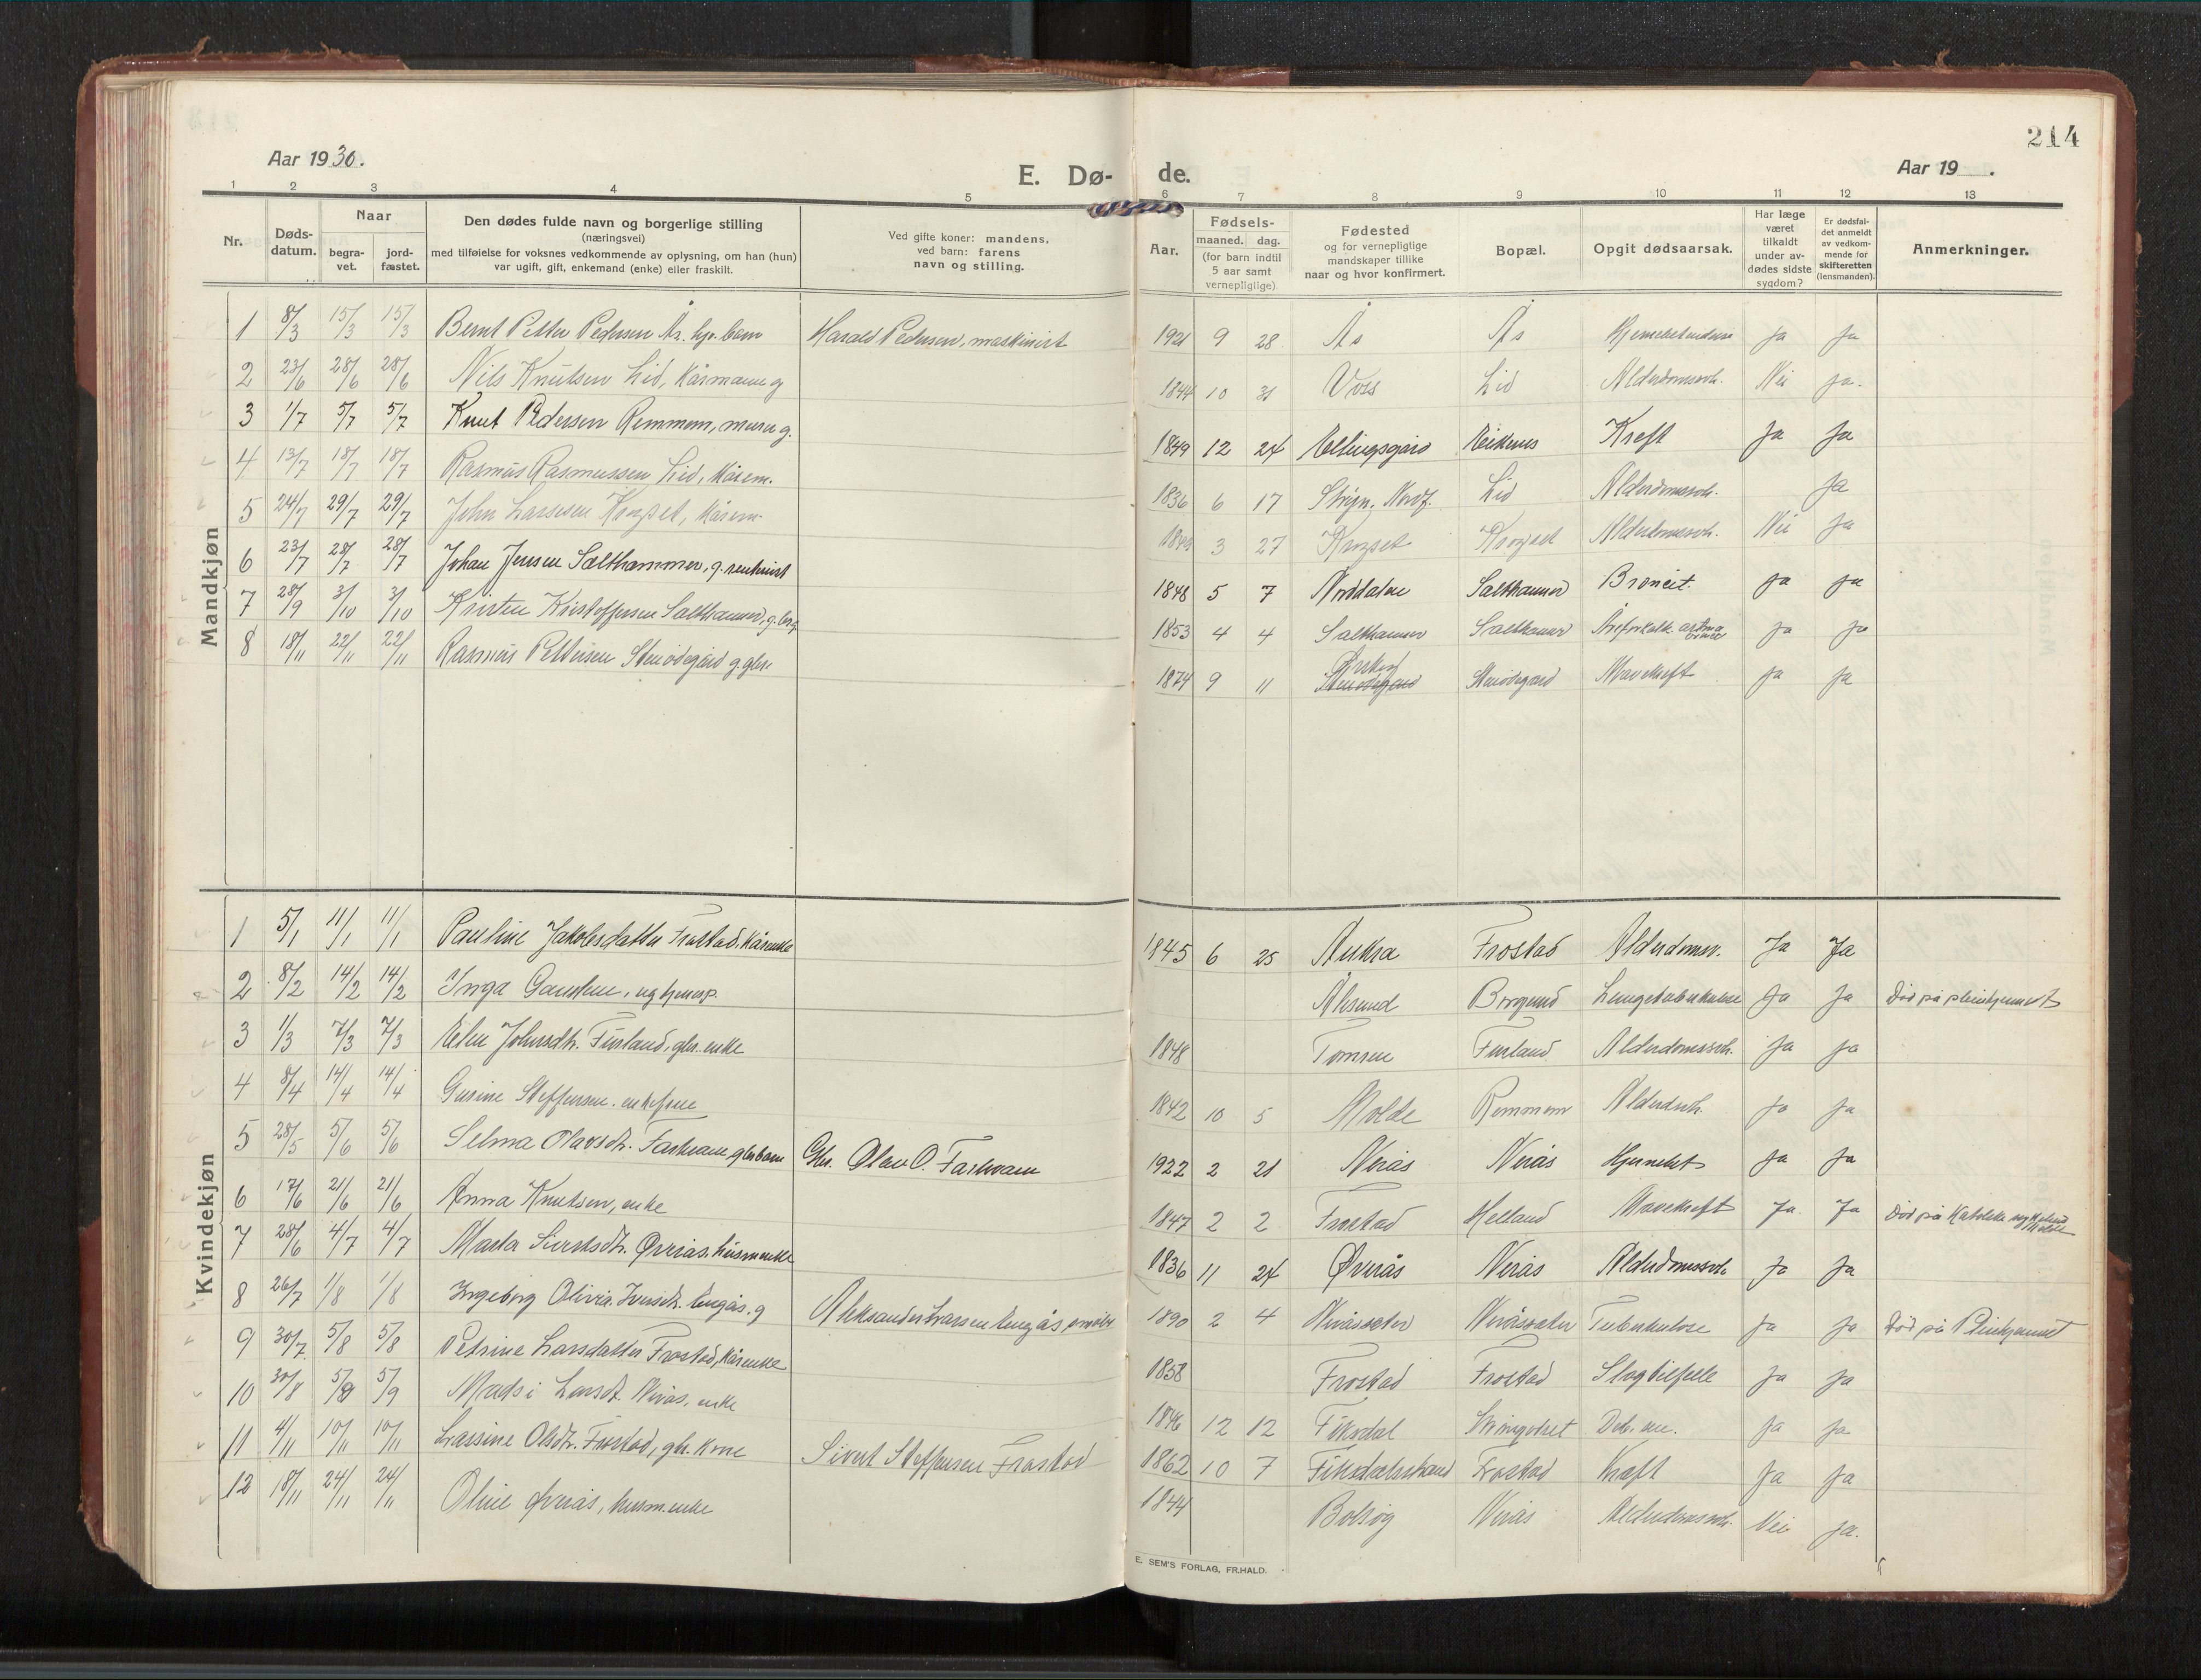 214
Aar 1930.
Aar 19 .
E. Dø-
de.
1 2 3 4 5 6 7 8 9 10 11 12 13
Nr.
Døds-
datum.
Naar
begra-
vet.
jord-
fæstet.
Den dødes fulde navn og borgerlige stilling
(næringsvei)
med tilføielse for voksnes vedkommende av oplysning, om han (hun)
var ugift, gift, enkemand (enke) eller fraskilt.
Ved gifte koner: mandens,
ved barn: farens
navn og stilling.
Aar.
Fødsels-
maaned. dag.
(for barn indtil
5 aar samt
vernepligtige)
Fødested
og for vernepligtige
mandskaper tillike
naar og hvor konfirmert.
Bopæl.
Opgit dødsaarsak.
Har læge
været
tilkaldt
under av-
dødes sidste
sygdom?
Er dødsfal-
det anmeldt
av vedkom-
mende for
skifteretten
(lensmanden).
Anmerkninger.
Mandkjøn
1 8/3 15/3 15/3 Bernt Petter Pedersen Ås. Harald Pedersen, maskinist 1921 9 28 Ås Ås Ja Ja
2 23/6 28/6 28/6 Nils Knutsen Lid, kårmann g 1844 10 31 Voss Lid Alderdomssvh. Nei Ja.
3 1/7 5/7 5/7 Knut Pedersen Remmem, murer g. 1849 12 24 Ellingsgård Eikenes Kreft Ja Ja
4 13/7 18/7 18/7 Rasmus Rasmussen Lid, kårem. 1836 6 17 Stryn. Nordf. Lid Alderdomssvh. Ja
5 24/7 29/7 29/7 John Larsesen, kårem. 3 27 Alderdomssvh. Nei Ja
6 23/7 28/7 28/7 Johan Jensen Salthammer, g. 1848 5 7 Norddalen Salthammer Ja Ja
7 28/9 3/10 3/10 Kristen Kristoffersen Salthammer, g. 1853 4 4 Salthammer Salthammer Åreforkalk. astma Ja Ja
8 18/11 22/11 22/11 Rasmus Pettersen Steinødegård g. gbr. 1874 9 11 Ørskog Steinødegård Mavekreft Ja Ja
Kvindekjøn
1 5/1 11/1 11/1 Pauline Jakobsdatter Frostad, kårenke 1845 6 25 Aukra Frostad Alderdomsv. Ja Ja
2 8/2 14/2 14/2 Inga, ug Ålesund Borgund Lungetuberkulose Ja Ja Død på pleiehjemmet
3 1/3 7/3 7/3 Johnsdtr. Furland, gbr. enke 1848 Tomren Furland Alderdomssvh. Ja Ja
4 8/4 14/4 14/4 Gurine Steffensen. enkefrue 1842 10 5 Molde Remmem Alderdsvh. Ja Ja
5 28/5 5/6 5/6 Selma Olavsdtr. gbr barn Gbr. Olav O. 1922 2 21 Nerås Nerås Ja Ja
6 17/6 21/6 21/6 Anna Knutsen, enke 1847 2 2 Frostad Helland Mavekreft Ja Ja Død på Katolske sykehus Molde
7 28/6 4/7 4/7 Marta Sivertsdtr. Øverås. husmenke 1836 11 24 Øverås Nerås Alderdomssvh Ja Ja
8 26/7 1/8 1/8 Ingeborg Olivia Iversdtr. Lengås. g Aleksander Larsen Lengås, 1890 2 4 Neråsseter Neråsseter Tuberkulose Ja Ja Død på Pleiehjemmet
9 30/7 5/8 5/8 Petrine Larsdatter Frostad, kårenke 1858 Frostad Frostad Slagtilfelle Ja Ja
10 30/8 5/9 5/9 Madsi Larsdt. Nerås, enke 1846 12 12 Fiksdal Ja Ja
11 4/11 10/11 10/11 Lassine Olsdtr. Frostad, gbr. kone Sivert Steffensen Frostad 1862 10 7 Fiksdalsstrand Frostad Kreft Ja Ja
12 18/11 24/11 24/11 Oline Øverås, husm.enke 1844 Bolsøy Nerås Alderdomssvh. Nei Ja.
E. SEM'S FORLAG, FR.HALD.